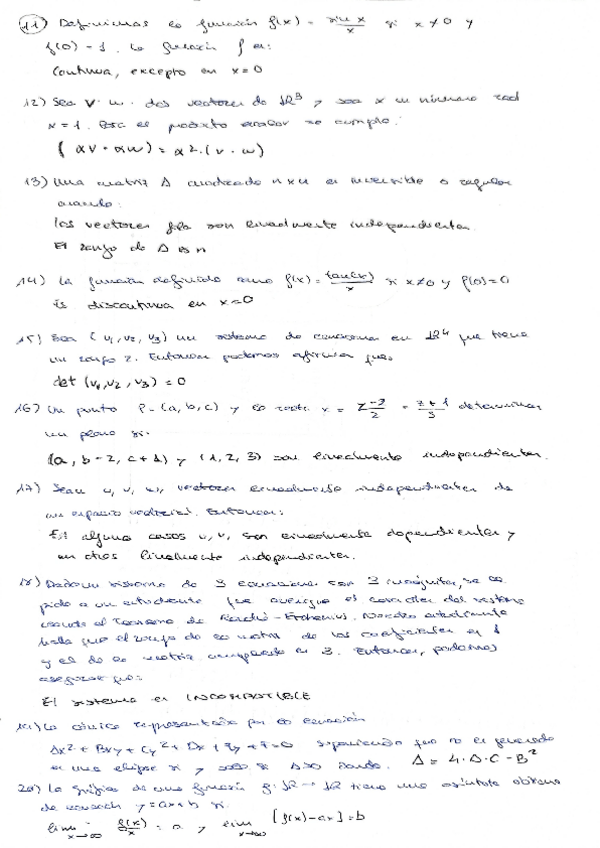 11) Definimos la función f(x) = sin x / x si x ≠ 0 y
f(0) = 1. La función f es:
Continua, excepto en x=0
12) Sea v · w dos vectores de IR3 y sea x un número real
x = 1. Para el producto escalar se cumple:
(αv · αw) = α2·(v · w)
13) Una matriz A cuadrada nxn es inversible o regular
cuando:
los vectores fila son linealmente independientes.
El rango de A es n
14) La función definida como f(x) = tan(x) / x si x≠0 y f(0)=0
Es discontinua en x=0
15) Sea {v1, v2, v3} un sistema de en IR4 que tiene
un rango 2. Entonces podemos afirmar que:
det (v1, v2, v3) = 0
16) Un punto P = (a, b, c) y la recta x = z-2 / 2 = z+1 / 3 determinan
un plano si:
(a, b-2, c+1) y (1, 2, 3) son linealmente independientes.
17) Sean u, v, w, vectores linealmente independientes de
un espacio vectorial. Entonces:
En algunos casos u, v, son linealmente dependientes y
en otros linealmente independientes.
18) Dado un sistema de 3 ecuaciones con 3 incógnitas, se le
pide a un estudiante que averigue el carácter del sistema
usando el Teorema de Rouché-Frobenius. Nuestro estudiante
halla que el rango de la matriz de los coeficientes es 1
y el de la matriz ampliada es 3. Entonces, podemos
asegurar que:
El sistema es INCOMPATIBLE
19) La cónica representada por la ecuación
Ax2 + Bxy + Cy2 + Dx + Ey + F = 0 suponiendo que no es generada
es una elipse si y solo si Δ>0 siendo. Δ = 4·A·C - B2
20) La gráfica de una función f: IR → IR tiene una asíntota oblicua
de ecuación y = ax + b si:
lim x→∞ f(x)/x = a y lim x→∞ [f(x) - ax] = b